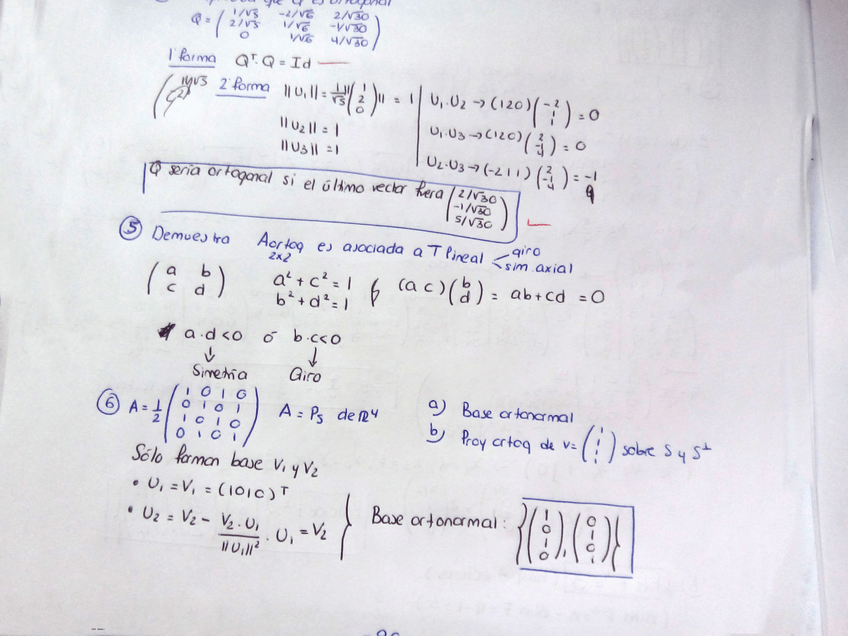 que Q es ortogonal
Q = ( 1/√5 -2/√6 2/√30
2/√5 1/√6 -1/√30
0 1/√6 4/√30 )
1ª forma Qᵀ·Q = Id
2ª forma ||U₁|| = 1/√5 || (1 2 0) || = 1
||U₂|| = 1
||U₃|| = 1
U₁·U₂ → (1 2 0) (-2 1 1) = 0
U₁·U₃ → (1 2 0) (2 -1 4) = 0
U₂·U₃ → (-2 1 1) (2 -1 4) = -1
Q sería ortogonal si el último vector fuera (2/√30 -1/√30 5/√30)
⑤ Demuestra A ortog es asociada a T lineal < giro
2x2 sim axial
( a b
c d )
a² + c² = 1
b² + d² = 1
(a c) (b d) = ab + cd = 0
a·d<0 ó b·c<0
↓ ↓
Simetría Giro
⑥ A = 1/2 ( 1 0 1 0
0 1 0 1
1 0 1 0
0 1 0 1 ) A = Ps de ℝ⁴
a) Base ortonormal
b) Proy ortog de v = (1 1 1 1) sobre S y S⊥
Sólo forman base V₁ y V₂
• U₁ = V₁ = (1010)ᵀ
• U₂ = V₂ - V₂·U₁ / ||U₁||² · U₁ = V₂
Base ortonormal: { (1 0 1 0), (0 1 0 1) }